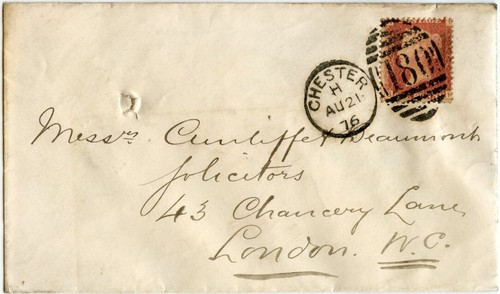 CHESTER
H
AU 21
76
180
Messrs Cunliffe & Beaumont
Solicitors
43 Chancery Lane
London. W.C.